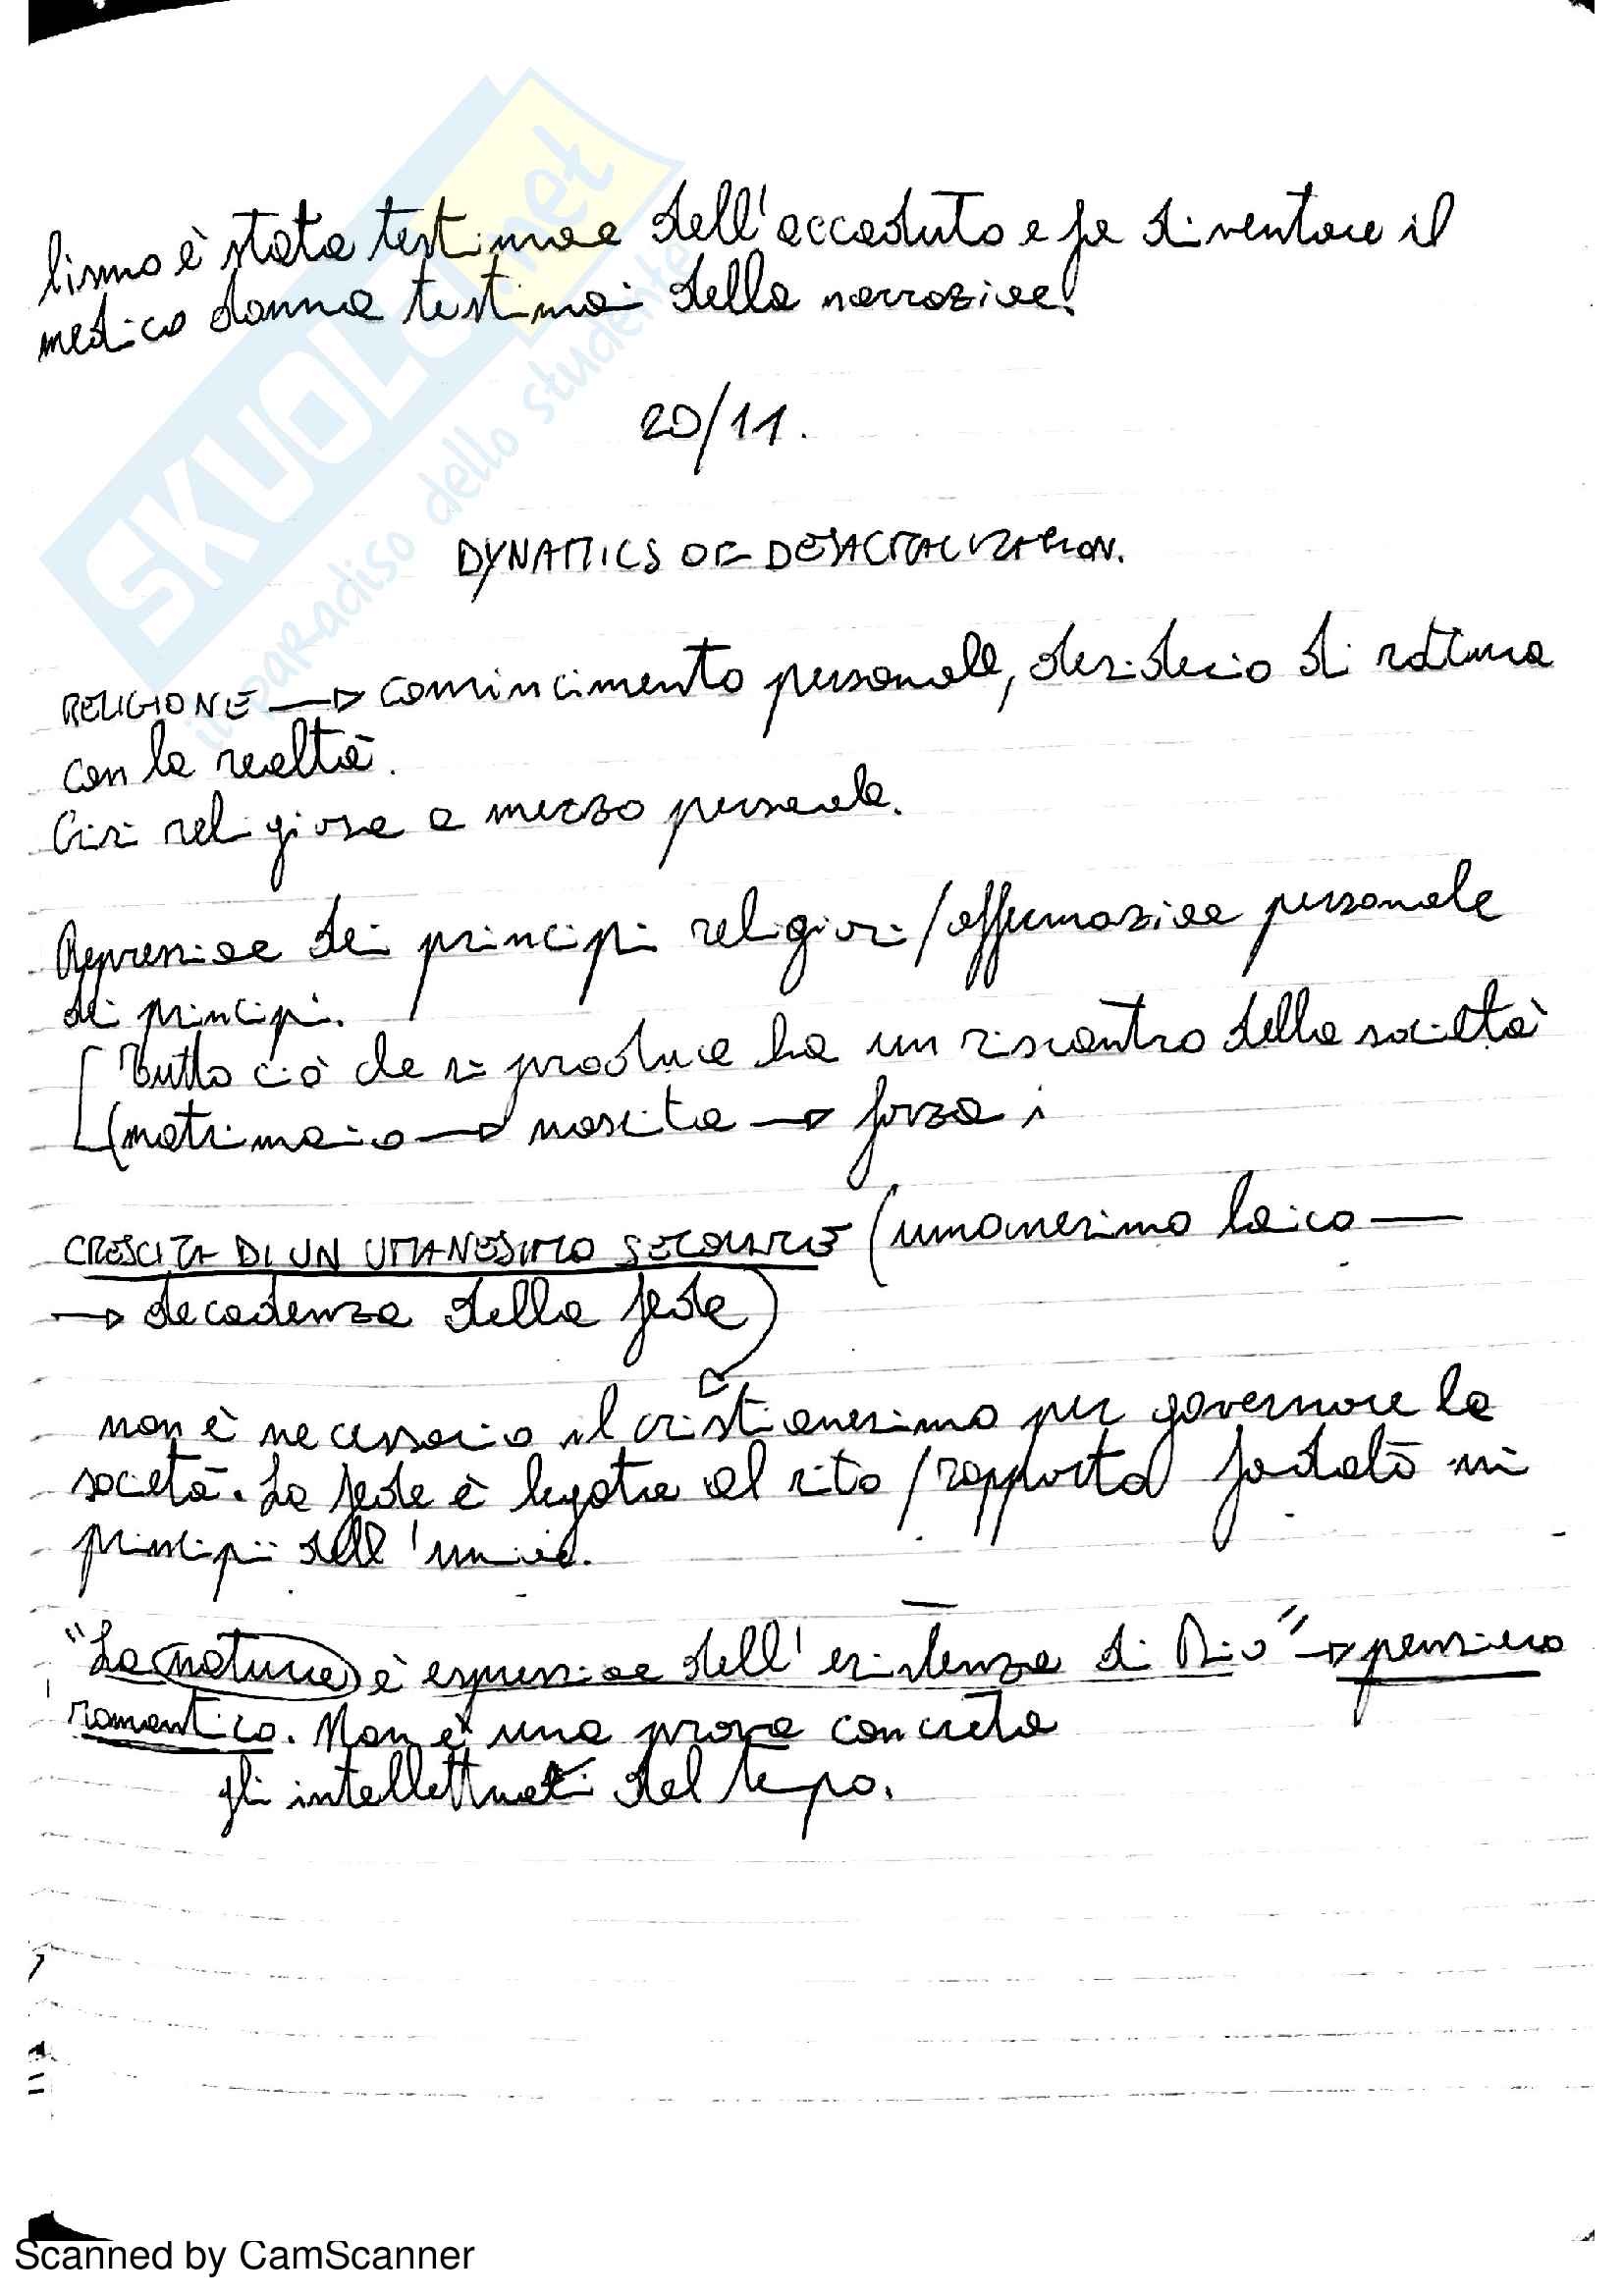 lismo è stata testimone dell'accaduto e fa diventare il
medico donna testimoni della narrazione.
20/11.
DYNAMICS OF DESACRALIZATION.
RELIGIONE → convincimento personale, desiderio di rottura
con la realtà.
Crisi religiosa a mezzo personale.
Repressione dei principi religiosi/affermazione personale
dei principi.
Tutto ciò che si produce ha un riscontro della società
(matrimonio → nascita → forza
CRESCITA DI UN UMANESIMO SECOLARE (umanesimo laico —
→ decadenza della fede)
non è necessario il cristianesimo per governare la
società. La fede è legata al rito/rapporto fondato sui
principi dell'unione.
"La natura è espressione dell'esistenza di Dio" → pensiero
romantico. Non è una prova concreta
gli intellettuali del tempo.
SKUOLA.net
il paradiso dello studente
Scanned by CamScanner